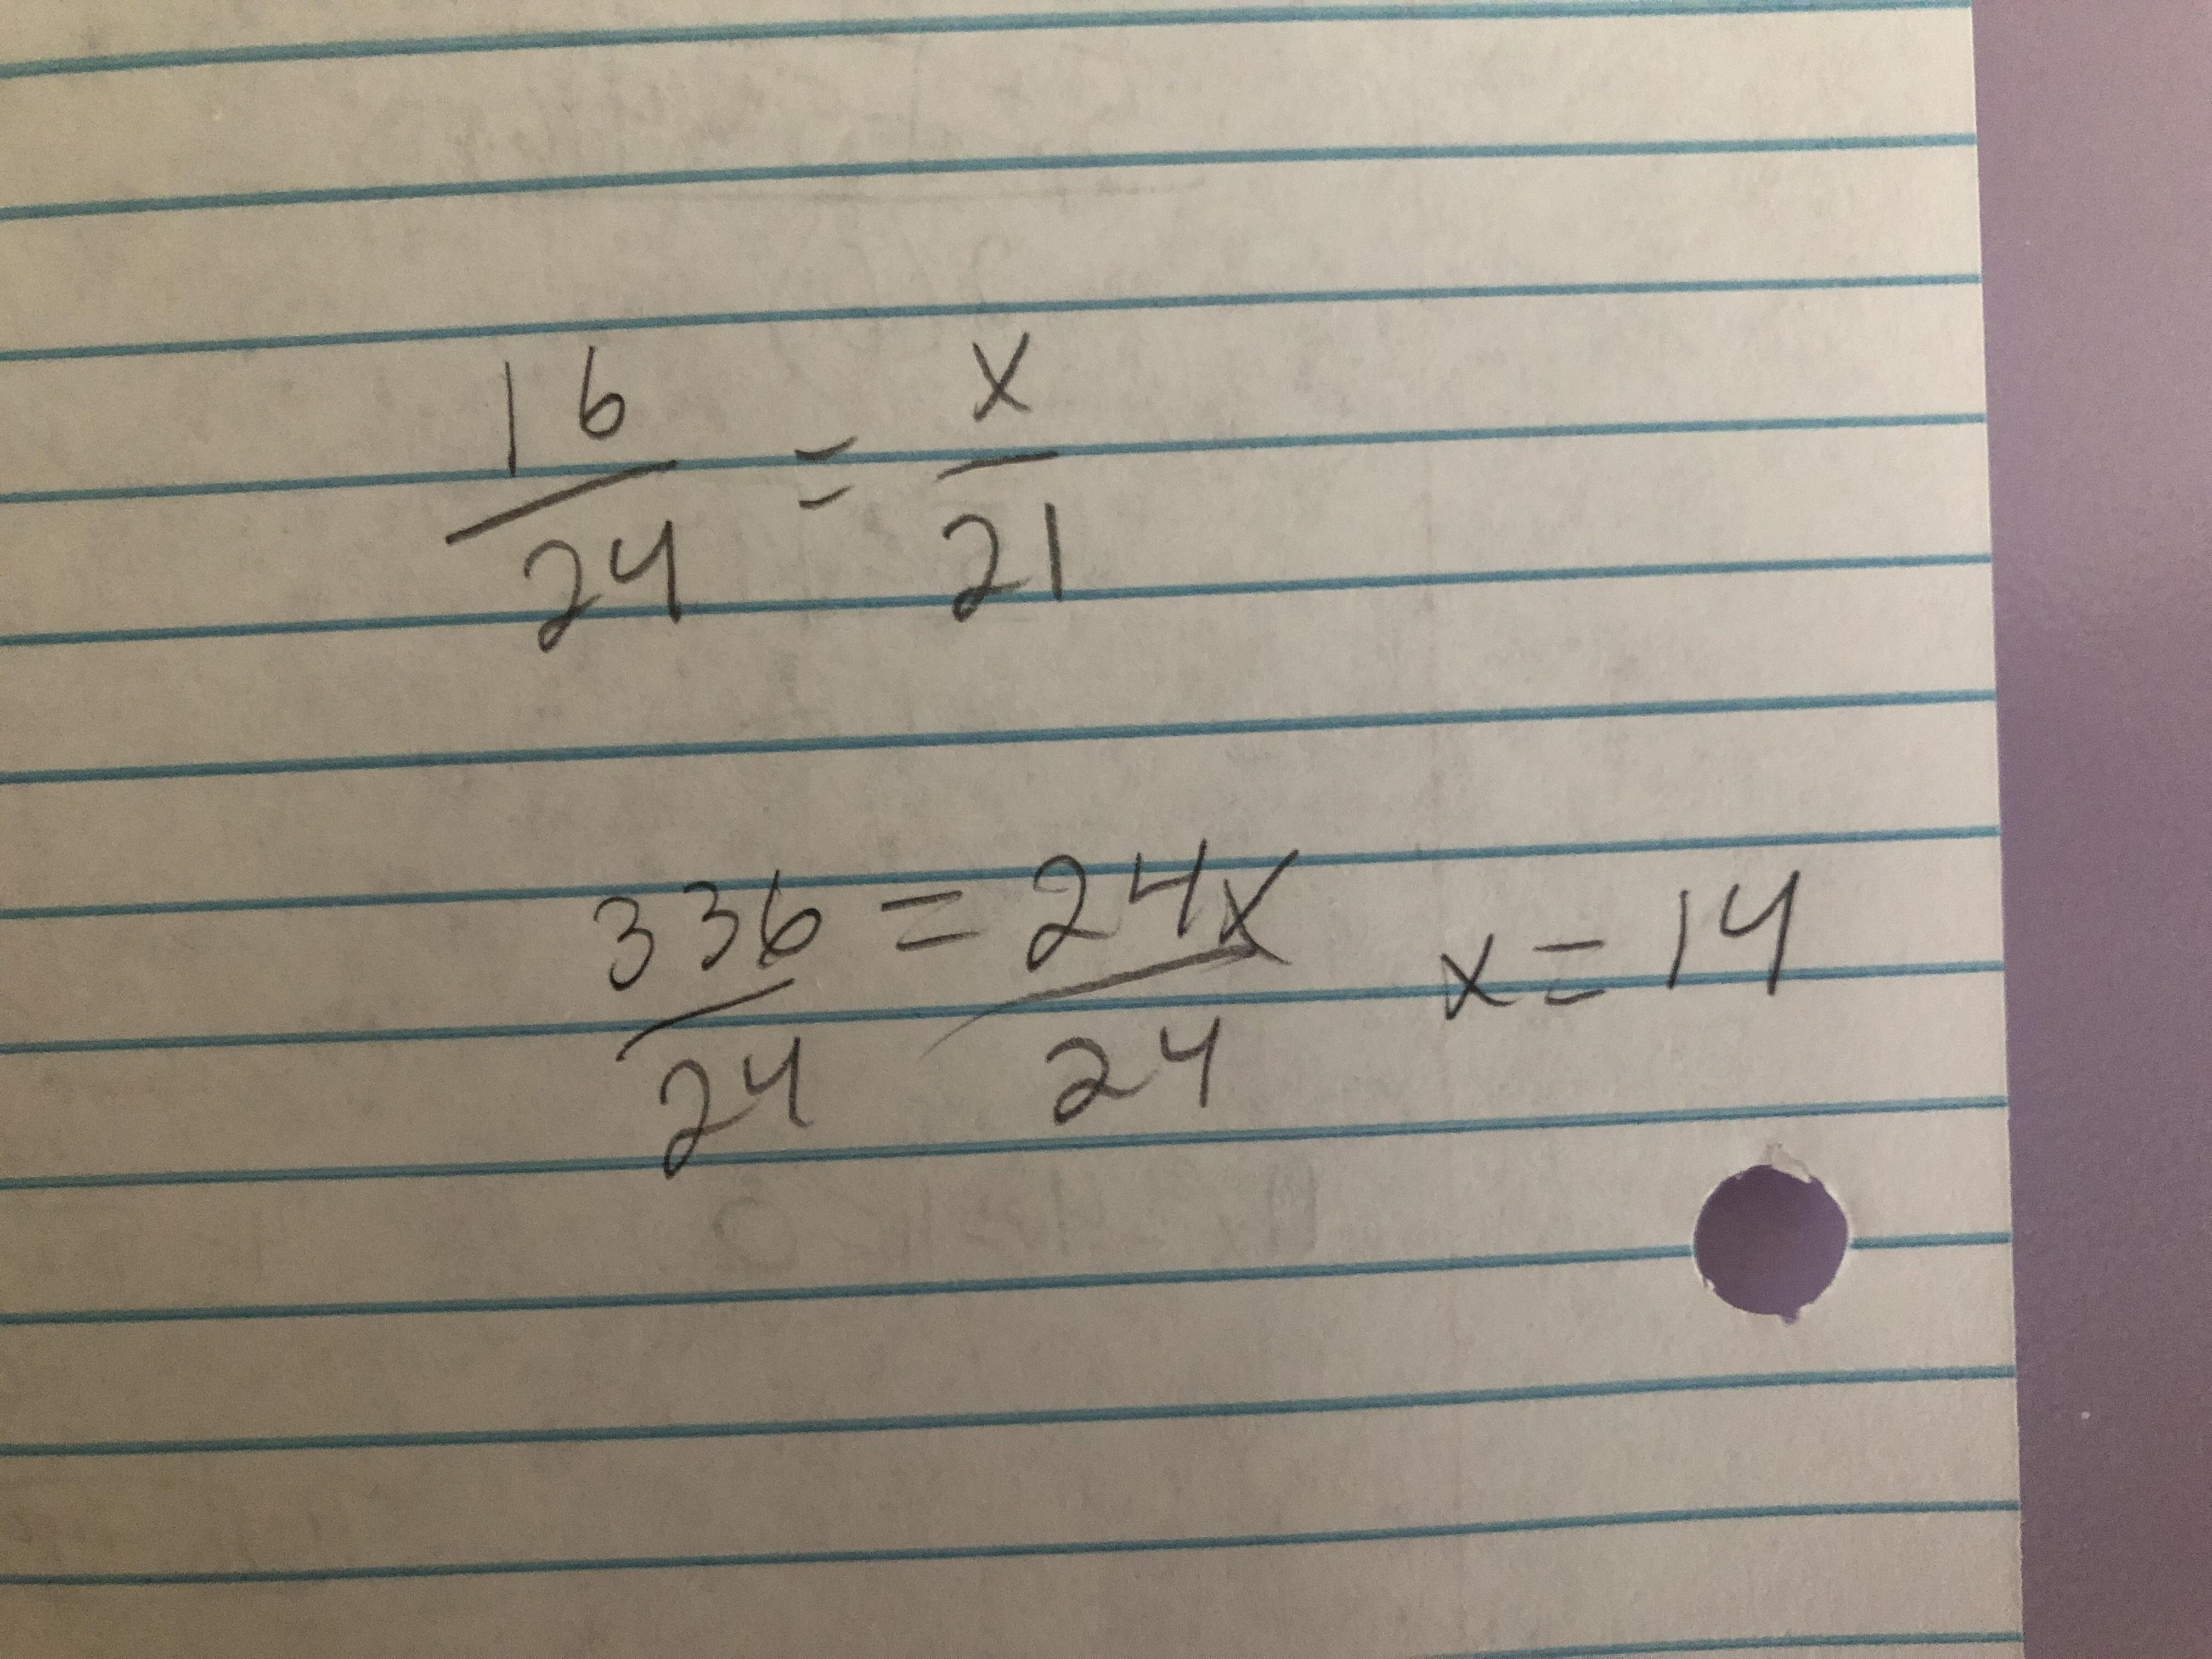 16/24 = x/21
336/24 = 24x/24 x = 14